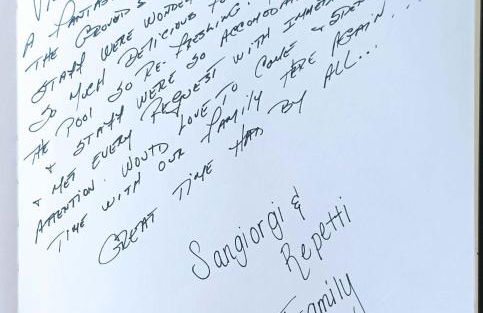 A FANTAS
THE GROUNDS
STAFF WERE WONDER
SO MUCH DELICIOUS FO
THE POOL SO RE-FRESHING.
& STAFF WERE SO ACCOMODAT
& MET EVERY REQUEST WITH IMMEDI
ATTENTION. WOULD LOVE TO COME & SPE
TIME WITH OUR FAMILY HERE AGAIN...
GREAT TIME HAD BY ALL...
Sangiorgi &
Repetti
Family